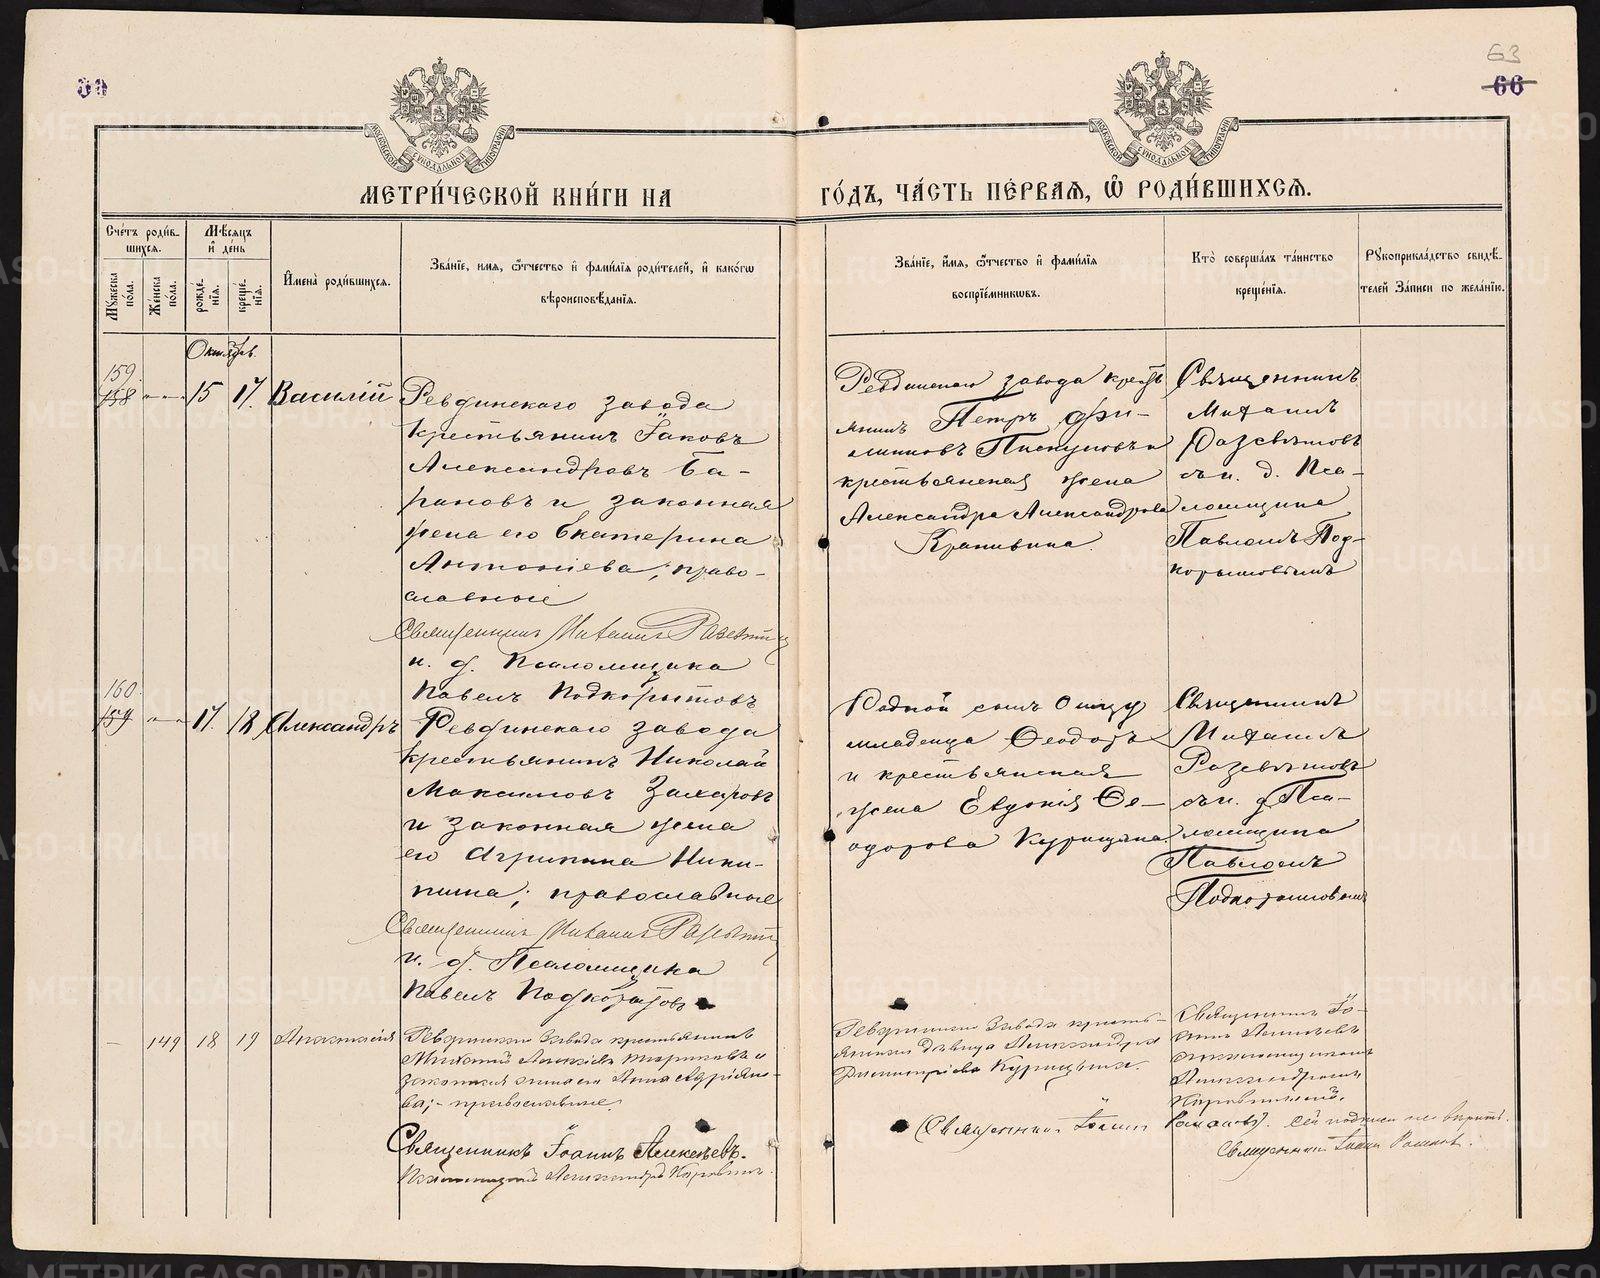 63
66
МЕТРИ́ЧЕСКОЙ КНИ́ГИ НА
ГО́ДЪ, ЧА́СТЬ ПЕ́РВАѦ, Ѡ҆ РОДИ́ВШИХСѦ.
Сче́тъ роди́в-
шихся.
Мꙋ́жеска пола.
Же́нска по́ла.
Мѣ́сяцъ
и҆ де́нь
рожде́-
нїя.
креще́-
нїя.
И҆мена̀ роди́вшихся.
Зва́нїе, имя, ѻ҆́тчество и҆ фами́лїя роди́телей, и҆ како́гѡ
вѣроисповѣ́данїя.
Зва́нїе, и҆́мя, ѻ҆́тчество и҆ фами́лїя
воспрїе́мниковъ.
Кто̀ соверша́лъ та́инство
креще́нїя.
Рꙋкоприкла́дство свидѣ́-
телей За́писи по жела́нїю.
Октябрь.
159.
158
15
17.
Василій
Ревдинскаго завода
крестьянинъ Іаковъ
Александровъ Ба-
рановъ и законная
жена его Екатерина
Антоніева; право-
славные
Священникъ Михаилъ
и. д. Псаломщика
Павелъ Подкорытовъ
Ревдинскаго завода кресть
янинъ Петръ Фи-
липповъ
крестьянская жена
Александра Александрова
Крапивина.
Священникъ
Михаилъ
съ и. д. Пса-
ломщика
Павломъ Под-
корытовымъ
160.
159
17.
18
Александръ
Ревдинскаго завода
крестьянинъ Николай
Максимовъ Захаровъ
и законная жена
его Агрипина Ники-
тина; православные
Священникъ Михаилъ
и. д. Псаломщика
Павелъ Подкорытовъ
Родной сынъ отцу
младенца Ѳеодотъ
и крестьянская
жена Евдокія Ѳе-
одорова Курицына.
Священникъ
Михаилъ
съ и. д. Пса-
ломщика
Павломъ
Подкорытовымъ
149
18
19
Анастасія
Ревдинскаго завода крестьянинъ
законная жена его Анна Адріано-
ва; - православные.
Священникъ Іоаннъ Алексѣевъ.
Псаломщикъ Александръ Коровинъ.
Ревдинскаго завода кресть-
янская дѣвица Александра
Димитріева Курицына.
Священникъ Іо-
аннъ Алексѣевъ
съ псаломщикомъ
Александромъ
Священникъ Іоаннъ Романовъ. Сей подписи не вѣрить.
Священникъ Іоаннъ Романовъ.
METRIKI.GASO-URAL.RU